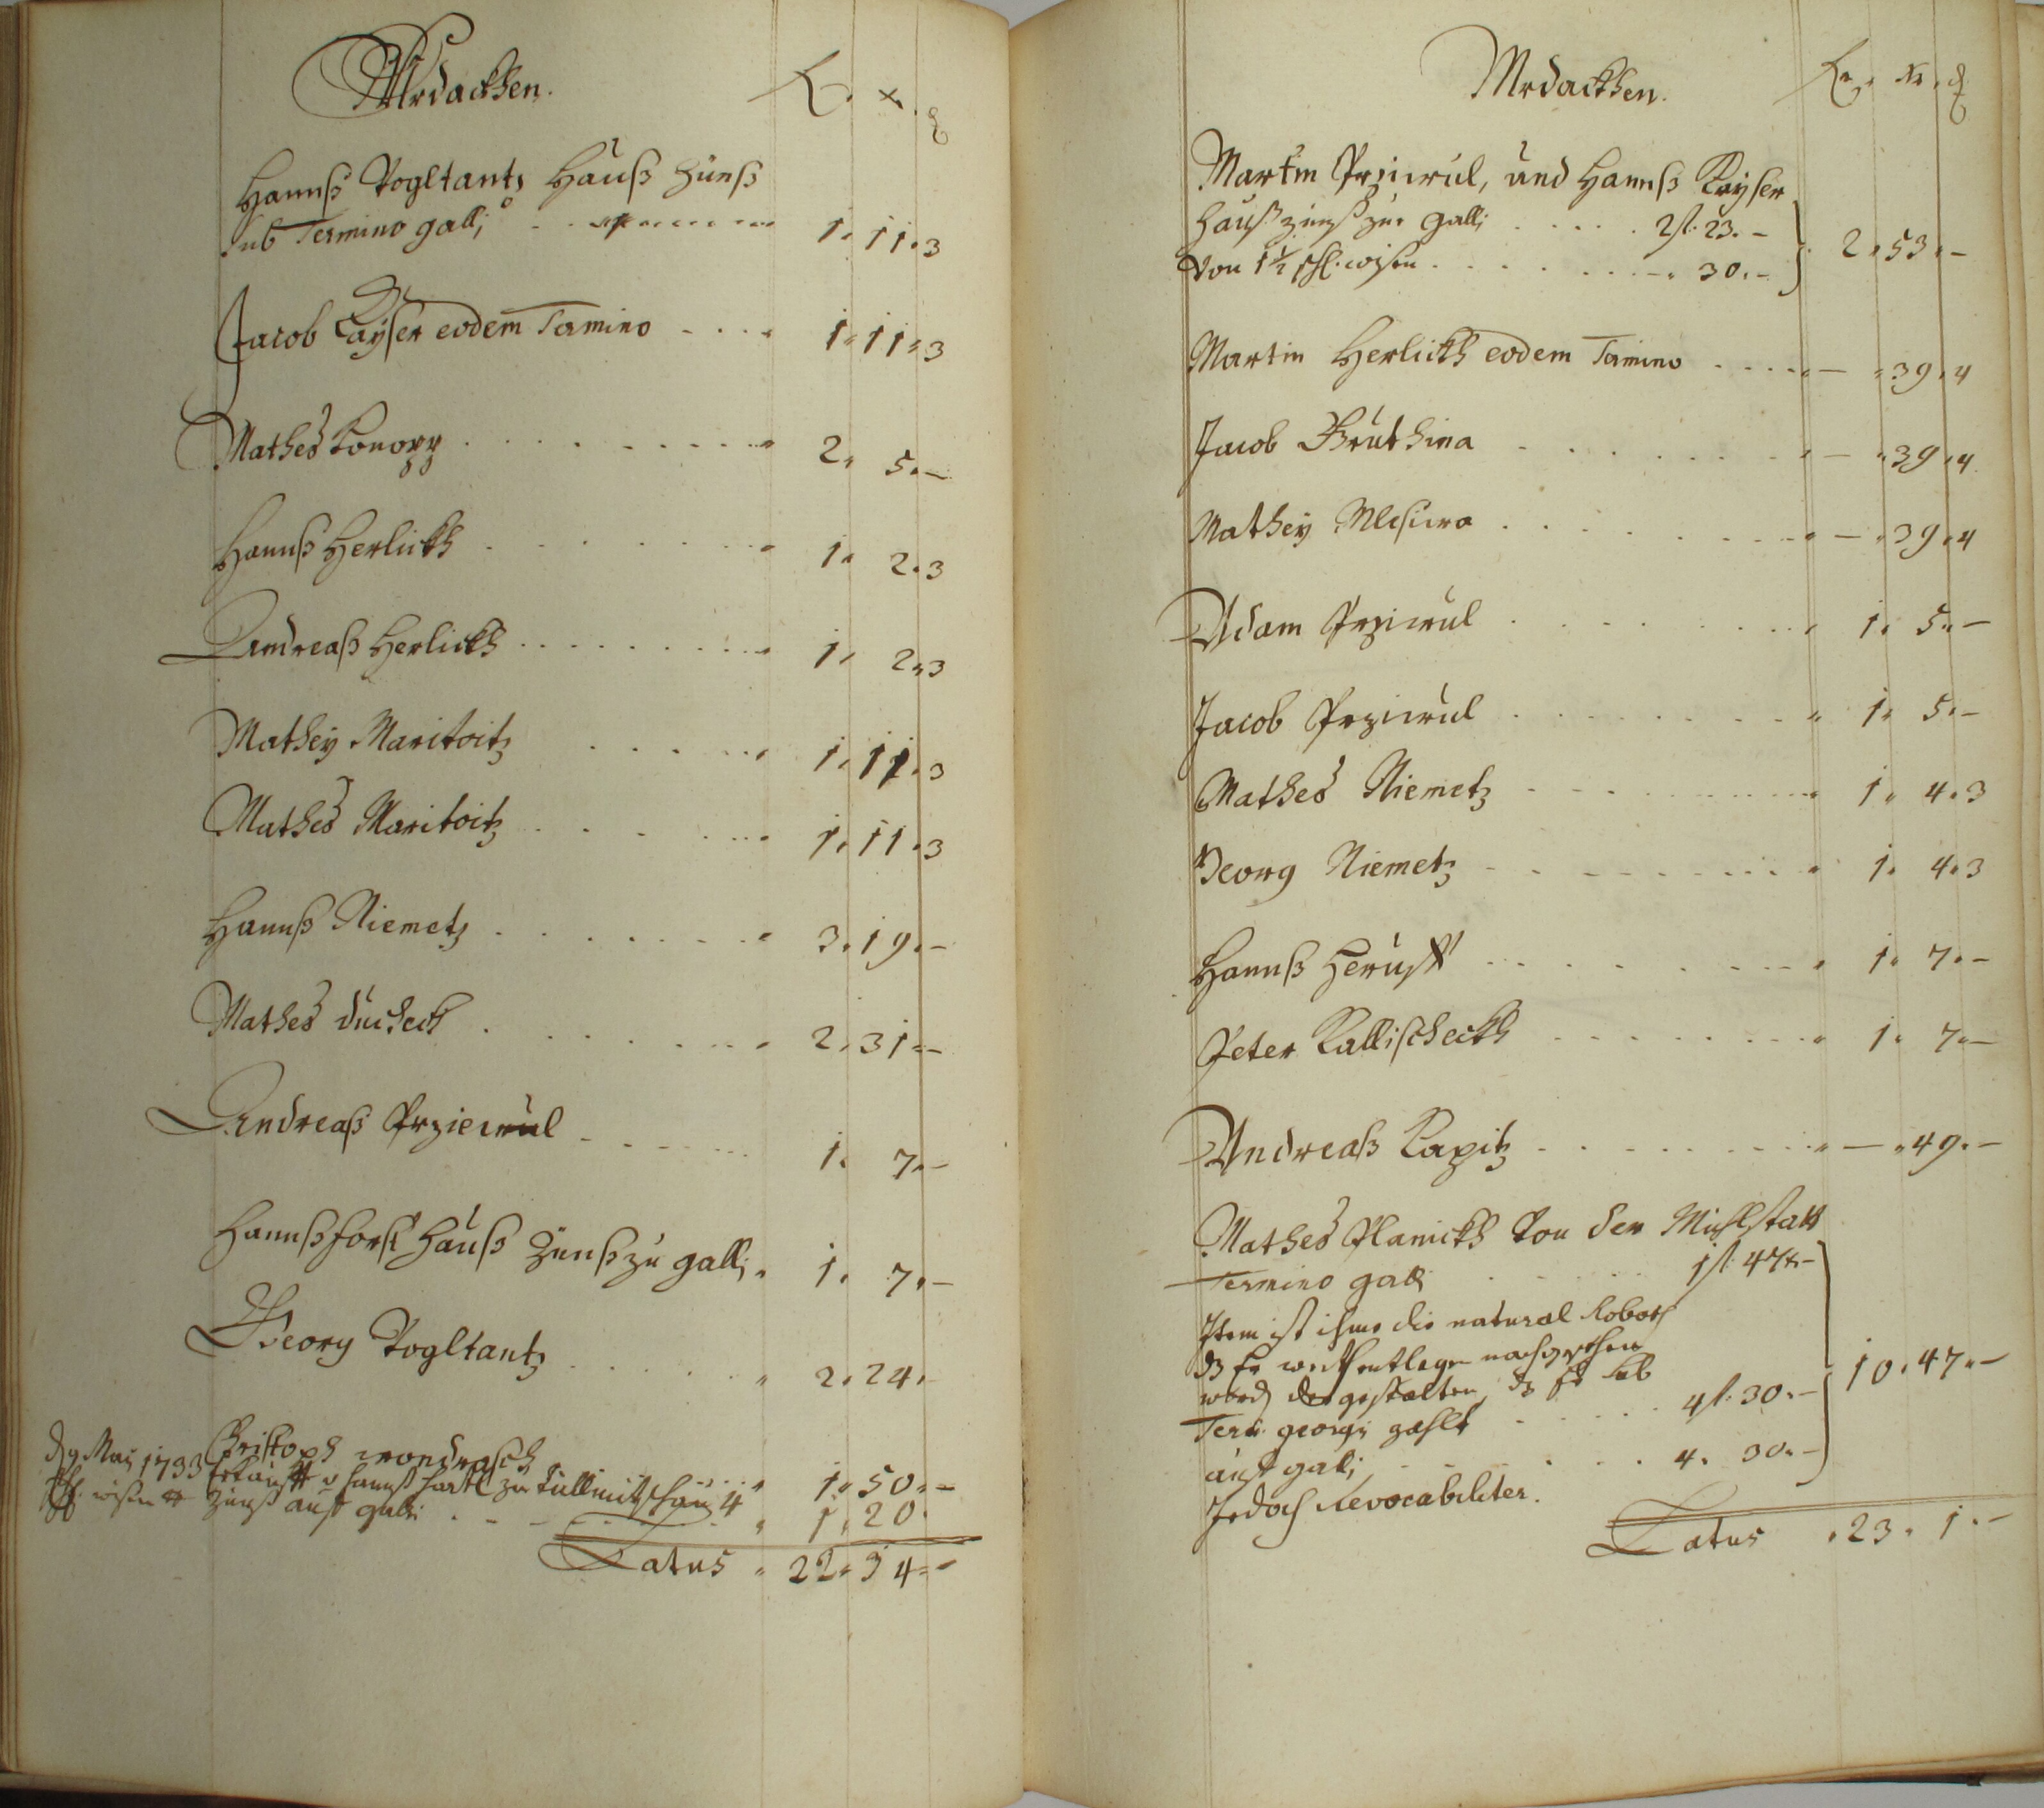 Mrdackhen. fl. xr. d
Hannß Vogltantz Hauß Zünß
sub Termino galli . . . 1. 11. 3
Jacob Kayser eodem Termino . . . 1. 11. 3
Mathes Konopp . . . 2. 5. –
Hannß Herlickh . . . 1. 2. 3
Andreaß Herlickh . . . 1. 2. 3
Mathey Maritoitz . . . 1. 11. 3
Mathes Maritoitz . . . 1. 11. 3
Hannß Niemetz . . . 3. 19. –
Mathes duscheck . . . 2. 31. –
Andreaß Przierwul . . . 1. 7. –
Hannß forst Hauß Zünß zu galli . 1. 7. –
Georg Vogltantz . . . 2. 24. –
Christoph wondrasch . . . 1. 50. –
d 9 Maij 1733 erkaufft v hannß hartl zu Tullmitschau 4
wisen Zünß auf galli . . . 1. 20.
Latus . 22. 34. –
Mrdackhen. fl. xr. d
Martin Przierwul, und Hannß Kayser
Haußzünß zu galli . . . 2 fl. 23. –
von 1 1/2 wisen . . . –. 30. – } 2. 53. –
Martin Herlickh eodem Termino . . . – . 39. 4
Jacob Bruthina . . . – . 39. 4
Mathey Mlesiwa . . . – . 39. 4
Adam Przierwul . . . 1. 5. –
Jacob Przierwul . . . 1. 5. –
Mathes Niemetz . . . 1. 4. 3
Georg Niemetz . . . 1. 4. 3
Hannß Herust . . . 1. 7. –
Peter Kallischeckh . . . 1. 7. –
Andreaß Kapitz . . . – . 49. –
Mathes Planickh von der Mühlstatt
Termino galli . . . 1 fl. 47 x. –
Item ist ihme die natural Roboth
dz Er nachgesehen
word, dergestalten, dz Er sub
Term. georgi zahlt . . . 4 fl. 30. – } 10. 47. –
auf galli . . . 4. 30. –
Jedoch Revocabiliter.
Latus . 23. 1. –